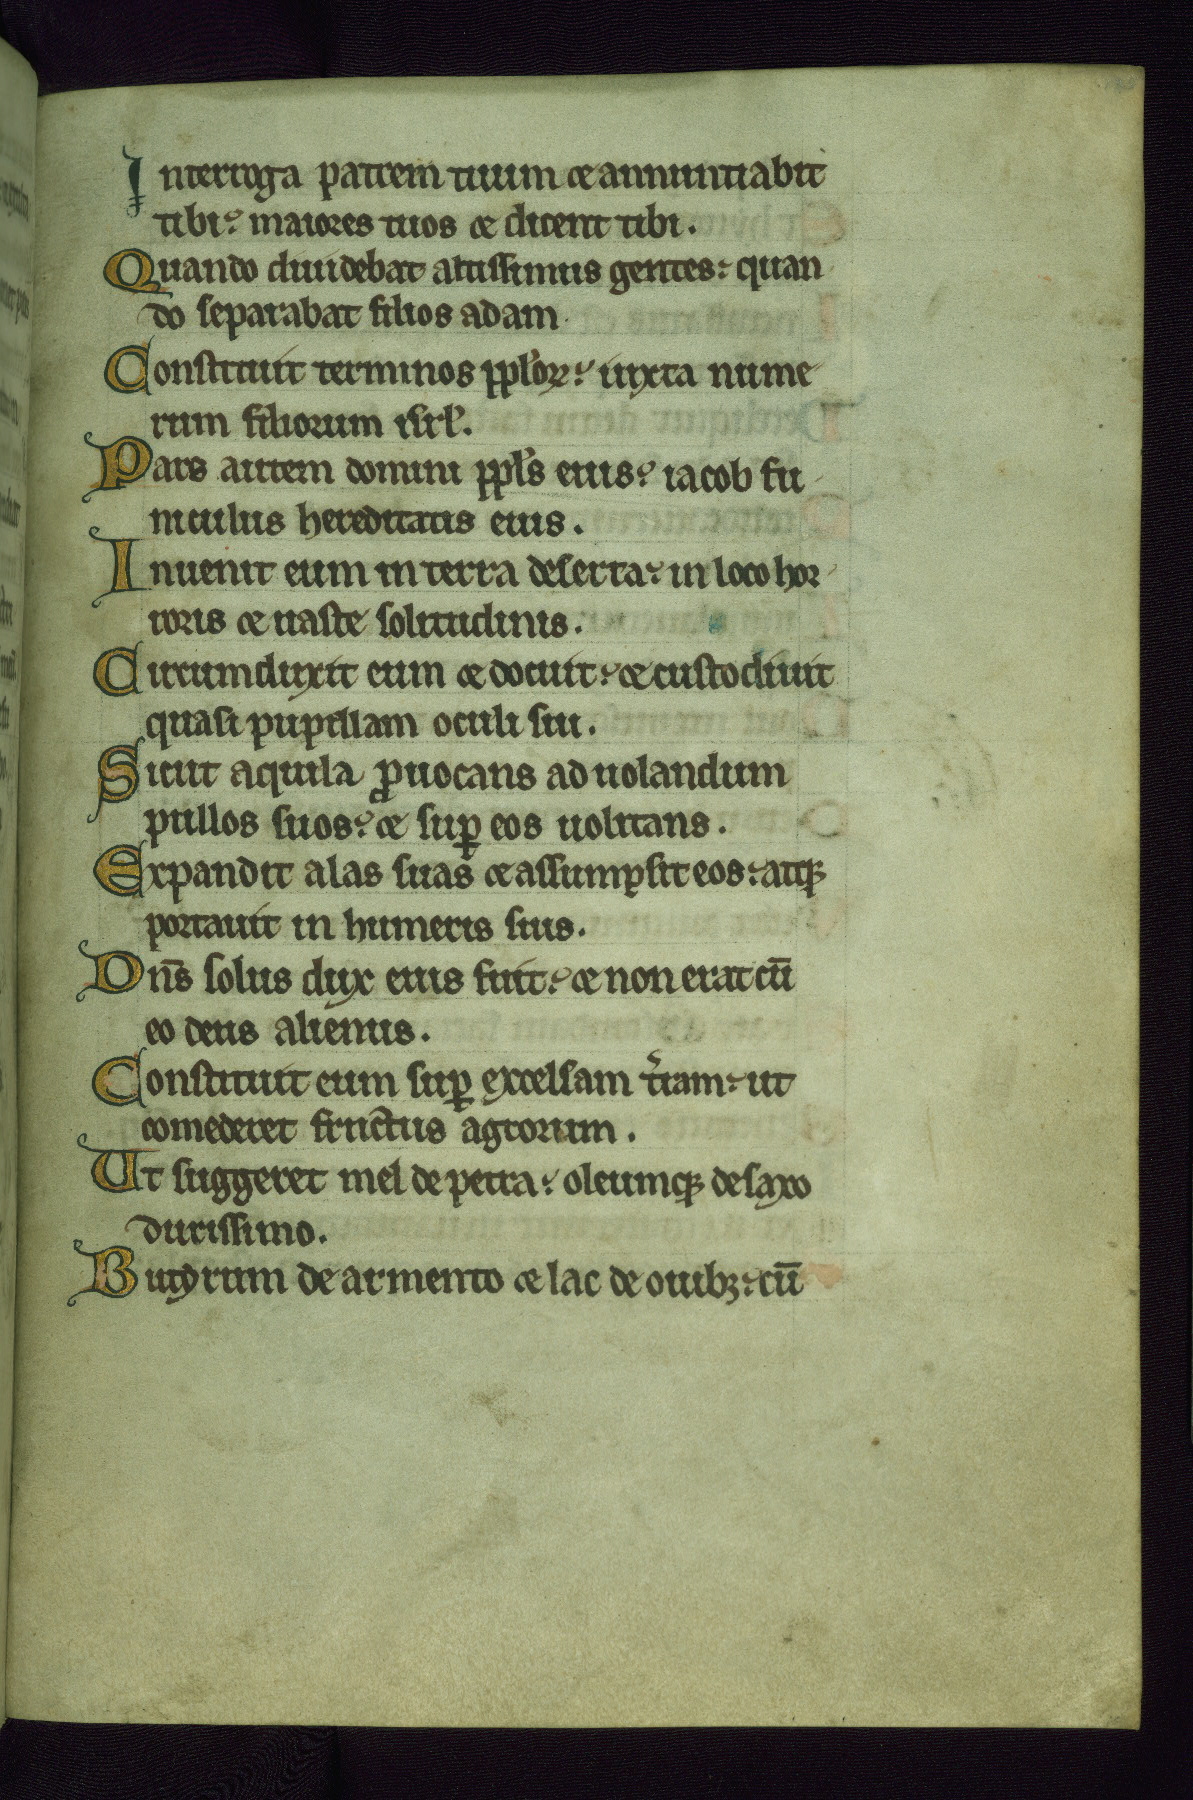 Interroga patrem tuum & annuntiabit
tibi: maiores tuos & dicent tibi.
Quando diuidebat altissimus gentes: quan
do separabat filios adam.
Constituit terminos pplorꝝ: iuxta nume
rum filiorum isrl'.
Pars autem domini ppl's eius: iacob fu
niculus hereditatis eius.
Inuenit eum in terra deserta: in loco hor
roris & uaste solitudinis.
Circumduxit eum & docuit: & custodiuit
quasi pupillam oculi sui.
Sicut aquila ꝓuocans ad uolandum
pullos suos: & suꝑ eos uolitans.
Expandit alas suas & assumpsit eos: atqꝫ
portauit in humeris suis.
Dn̄s solus dux eius fuit: & non erat cū
eo deus alienus.
Constituit eum suꝑ excelsam t'ram: ut
comederet fructus agrorum.
Ut suggeret mel de petra: oleumqꝫ de saxo
durissimo.
Butyrum de armento & lac de ouibꝫ: cū